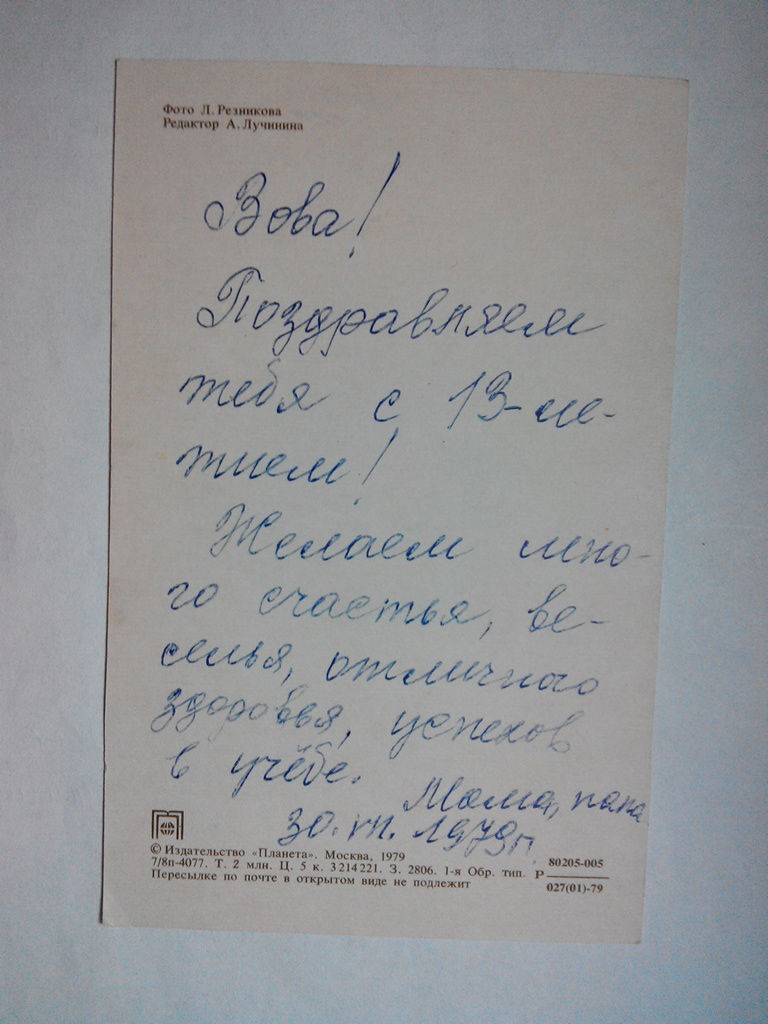 Фото Л. Резникова
Редактор А. Лучинина
Вова!
Поздравляем
тебя с 13-ле-
тием!
Желаем мно-
го счастья, ве-
селья, отличного
здоровья, успехов
в учёбе.
Мама, папа
30. VII. 1979г.
© Издательство «Планета». Москва, 1979
7/8п-4077. Т. 2 млн. Ц. 5 к. 3214221. З. 2806. 1-я Обр. тип.
Пересылке по почте в открытом виде не подлежит
Р 80205-005
027(01)-79